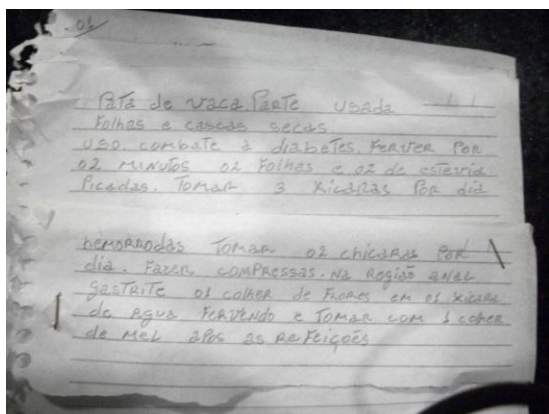 01
Pata de vaca. Parte usada
Folhas e cascas secas
uso. combate a diabetes. Ferver por
02 minutos 02 Folhas e 02 de estevia
Picadas. Tomar 3 xicaras por dia
hemorrodas Tomar 02 chicaras por
dia. Fazer compressas. na região anal
gastrite 01 colher de Flores em 01 xicara
de agua Fervendo e Tomar com 1 colher
de mel apos as refeições